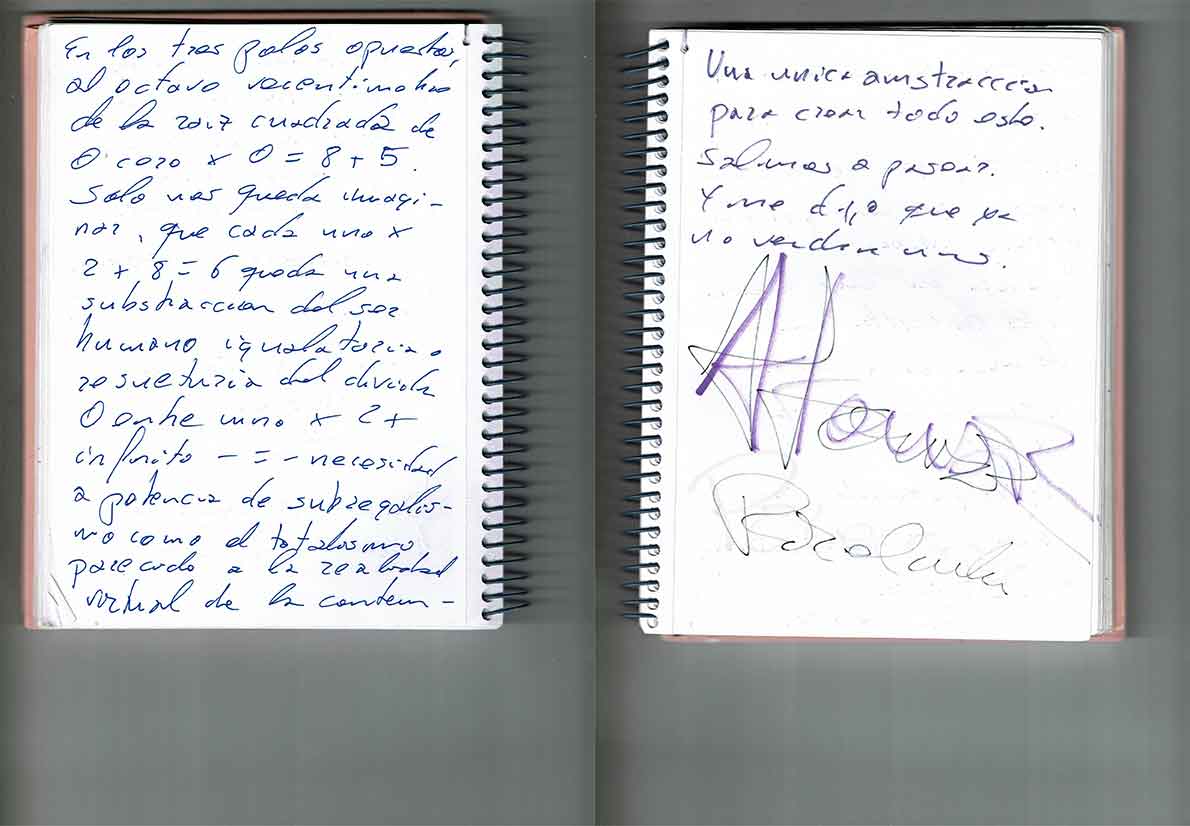 En los tres polos opuestos,
al octavo
de la raiz cuadrada de
0 cero x 0 = 8 + 5.
Solo nos queda imagi-
nar, que cada uno x
2 + 8 = 6 queda una
substraccion del ser
humano igualatoria o
del divida
0 entre uno x 2 +
infinito - = - necesidad
a potencia de subregalis-
mo como el totalismo
parecido a la realidad
virtual de la contem-
Una unica amstraccion
para crear todo esto.
Salimos a pasear.
Y me dijo que ya
no